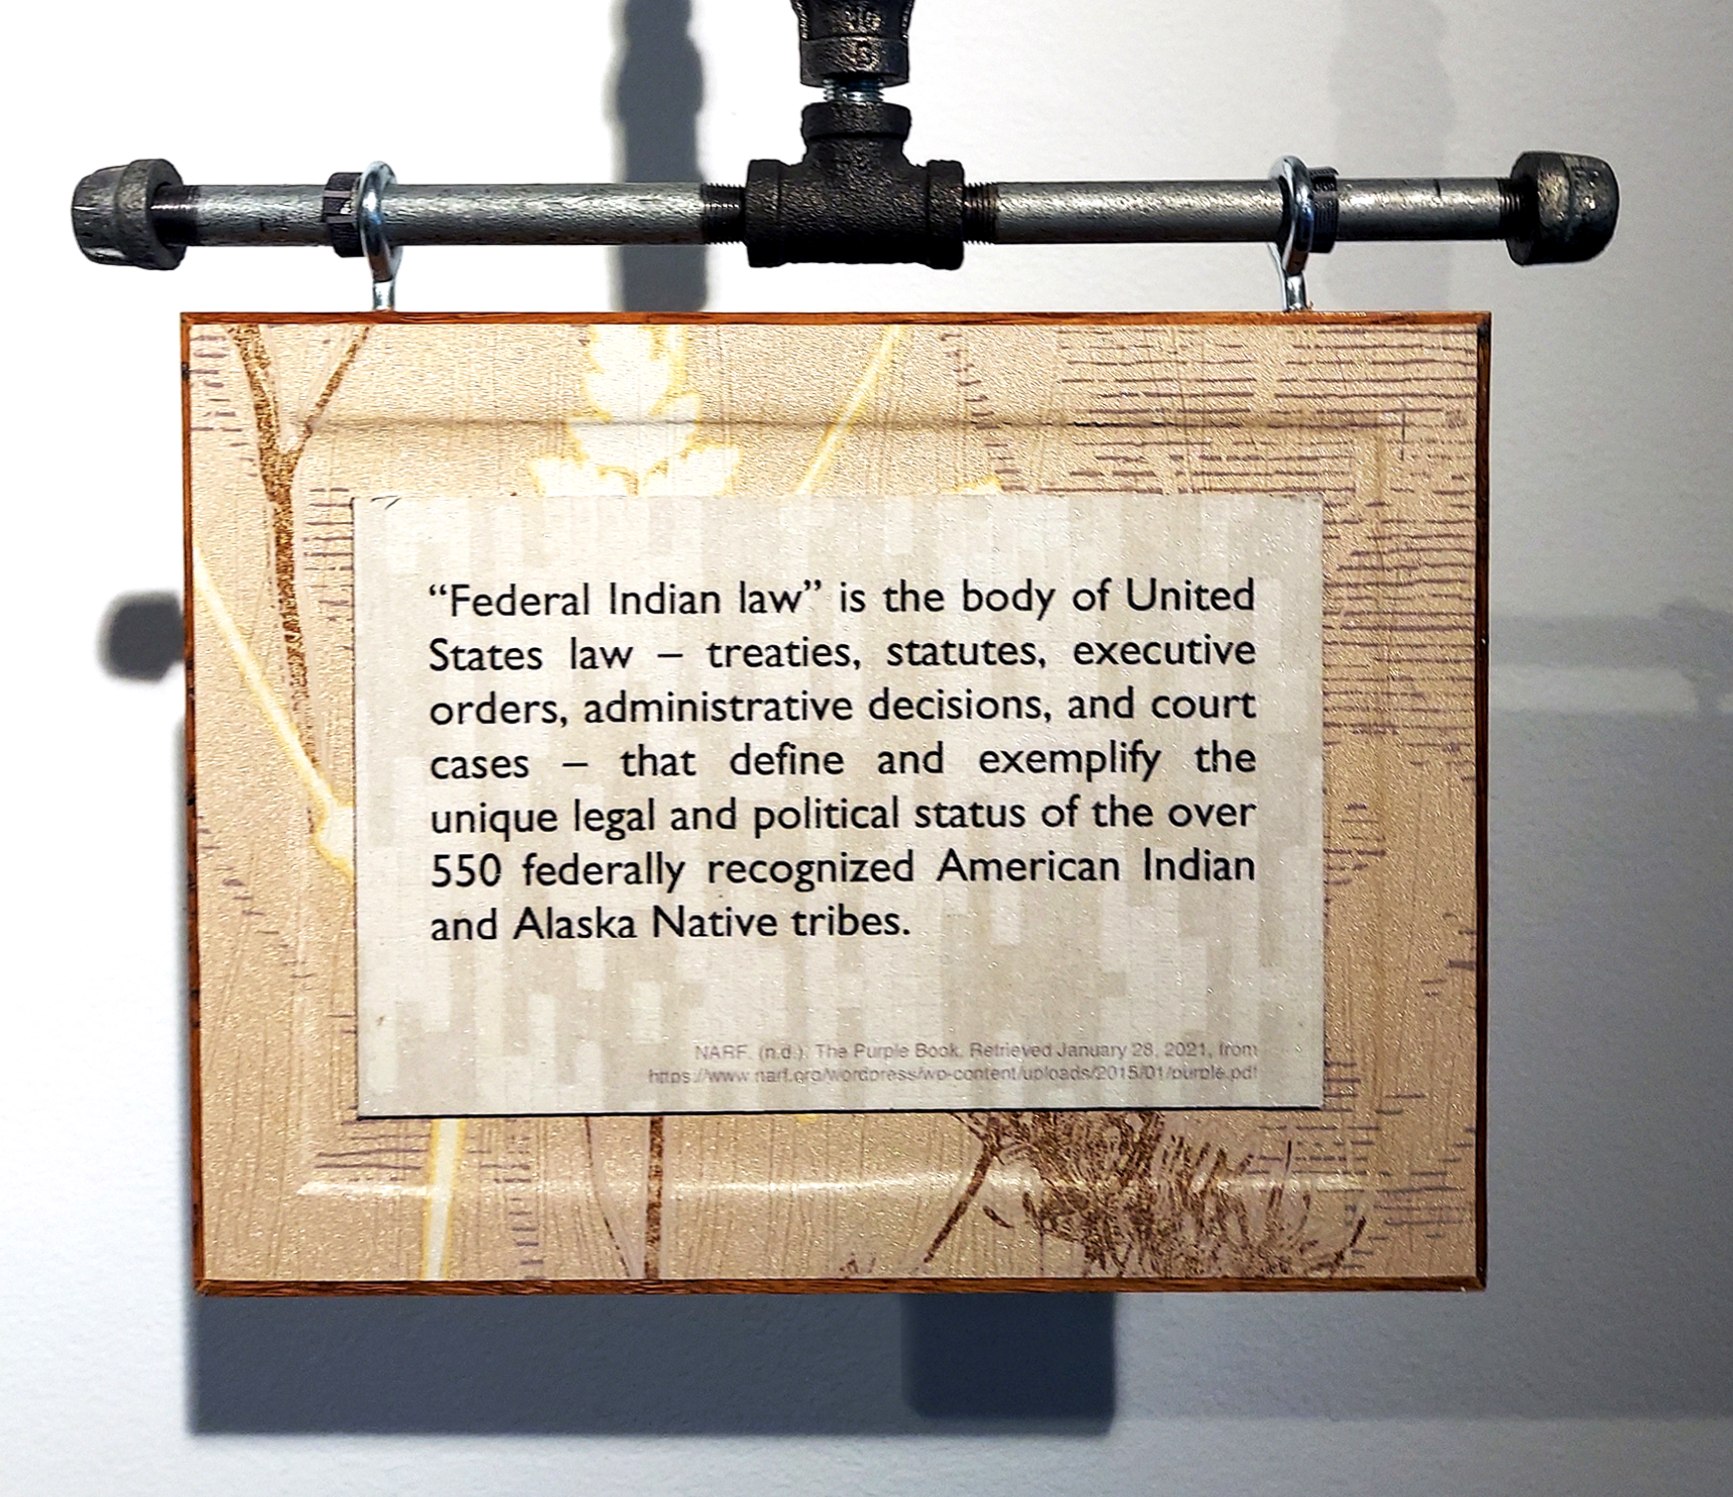 “Federal Indian law” is the body of United
States law – treaties, statutes, executive
orders, administrative decisions, and court
cases – that define and exemplify the
unique legal and political status of the over
550 federally recognized American Indian
and Alaska Native tribes.
NARF. (n.d.). The Purple Book. Retrieved January 28, 2021, from
https://www.narf.org/wordpress/wp-content/uploads/2015/01/purple.pdf